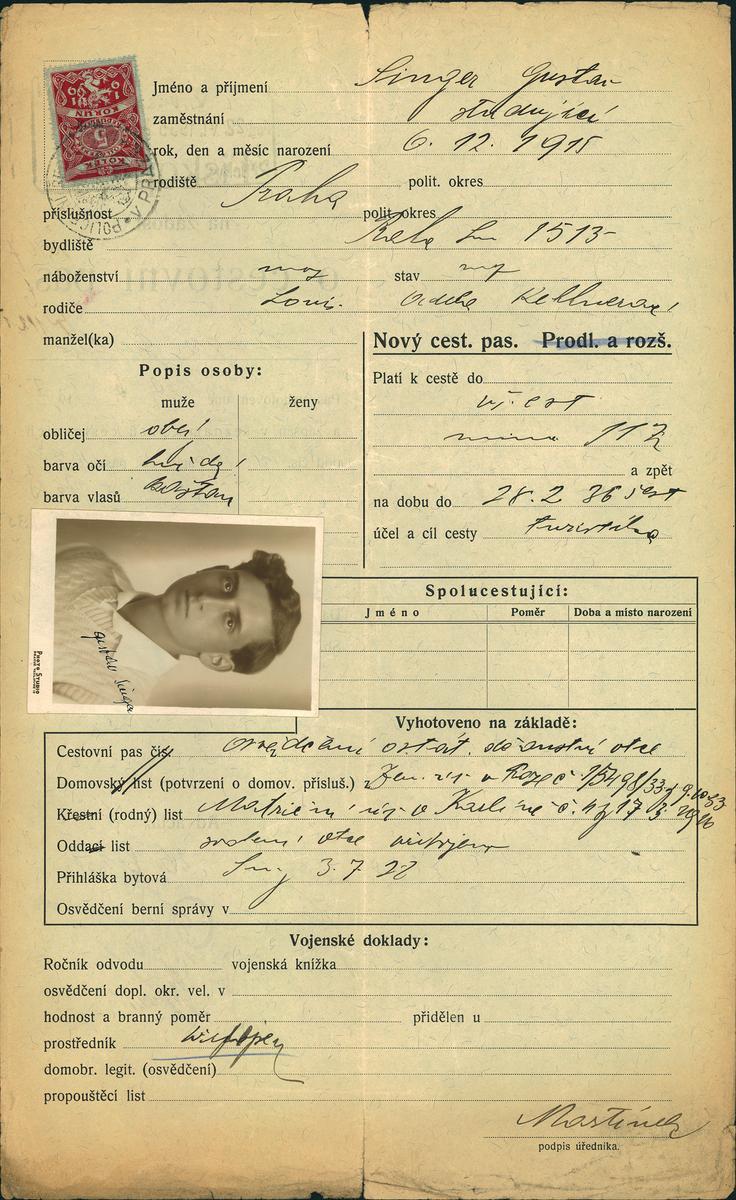 Jméno a příjmení Singer Gustav
zaměstnání studující
rok, den a měsíc narození 6. 12. 1915
rodiště Praha polit. okres
příslušnost polit. okres
bydliště 1513
náboženství moj stav
rodiče Louis. Kellnerová
manžel(ka)
Nový cest. pas. Prodl. a rozš.
Popis osoby:
muže ženy
obličej obl.
barva očí hnědé
barva vlasů kaštan
Platí k cestě do
vš. est
mimo 117
a zpět
na dobu do 28. 2. 36
účel a cíl cesty turistika
5
KORUN
KOLEK
V PRA
POLICEJNÍ
Gustav Singer
PHOTO STUDIO
Spolucestující:
Jméno Poměr Doba a místo narození
Vyhotoveno na základě:
Cestovní pas čís. osvědčení o stát. občanství otce
Domovský list (potvrzení o domov. přísluš.) Zem. úř. v Praze č. 9.10.33
Křestní (rodný) list Matriční úř. v Karlíně č.
Oddací list otce
Přihláška bytová 3. 7. 28
Osvědčení berní správy v
Vojenské doklady:
Ročník odvodu vojenská knížka
osvědčení dopl. okr. vel. v
hodnost a branný poměr přidělen u
prostředník
domobr. legit. (osvědčení)
propouštěcí list
Martínek
podpis úředníka.